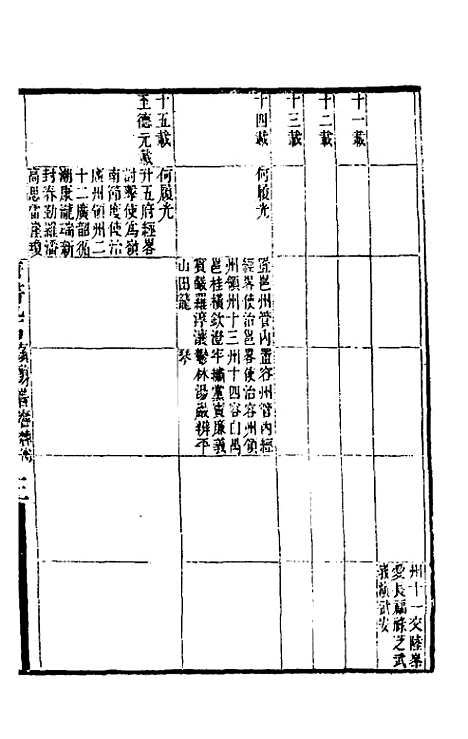 州十一交陸峯
愛長福祿芝武
演武安
十一載
十二載
十三載
十四載
何履光
置邕州管內置容州管內經
經略使治邕畧使治容州領
州領州十三州十四容白禺
邕桂橫欽澄牢繡黨竇廉義
賓嚴羅淳瀼鬱林湯巖辨平
山田籠　琴
十五載
至德元載
何履光
升五府經畧
討擊使爲嶺
南節度使治
廣州領州二
十二廣韶循
潮康瀧端新
封春勤羅潘
高恩雷崖瓊